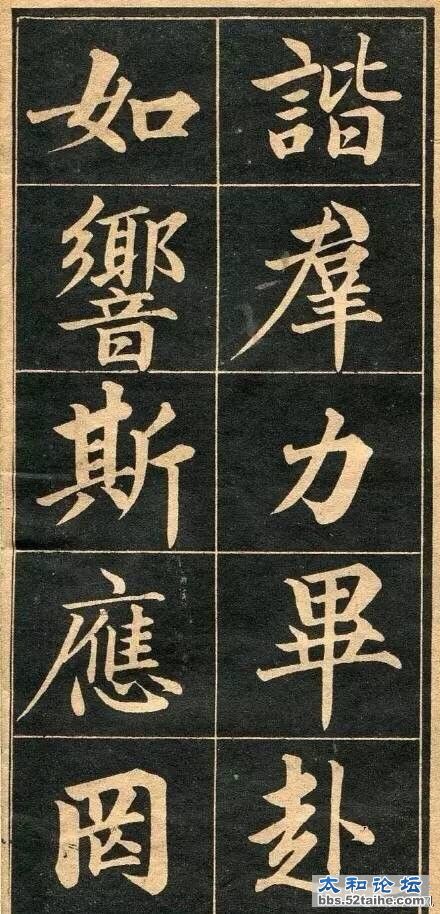 諧羣力畢赴
如響斯應罔
太和论坛
bbs.52taihe.com